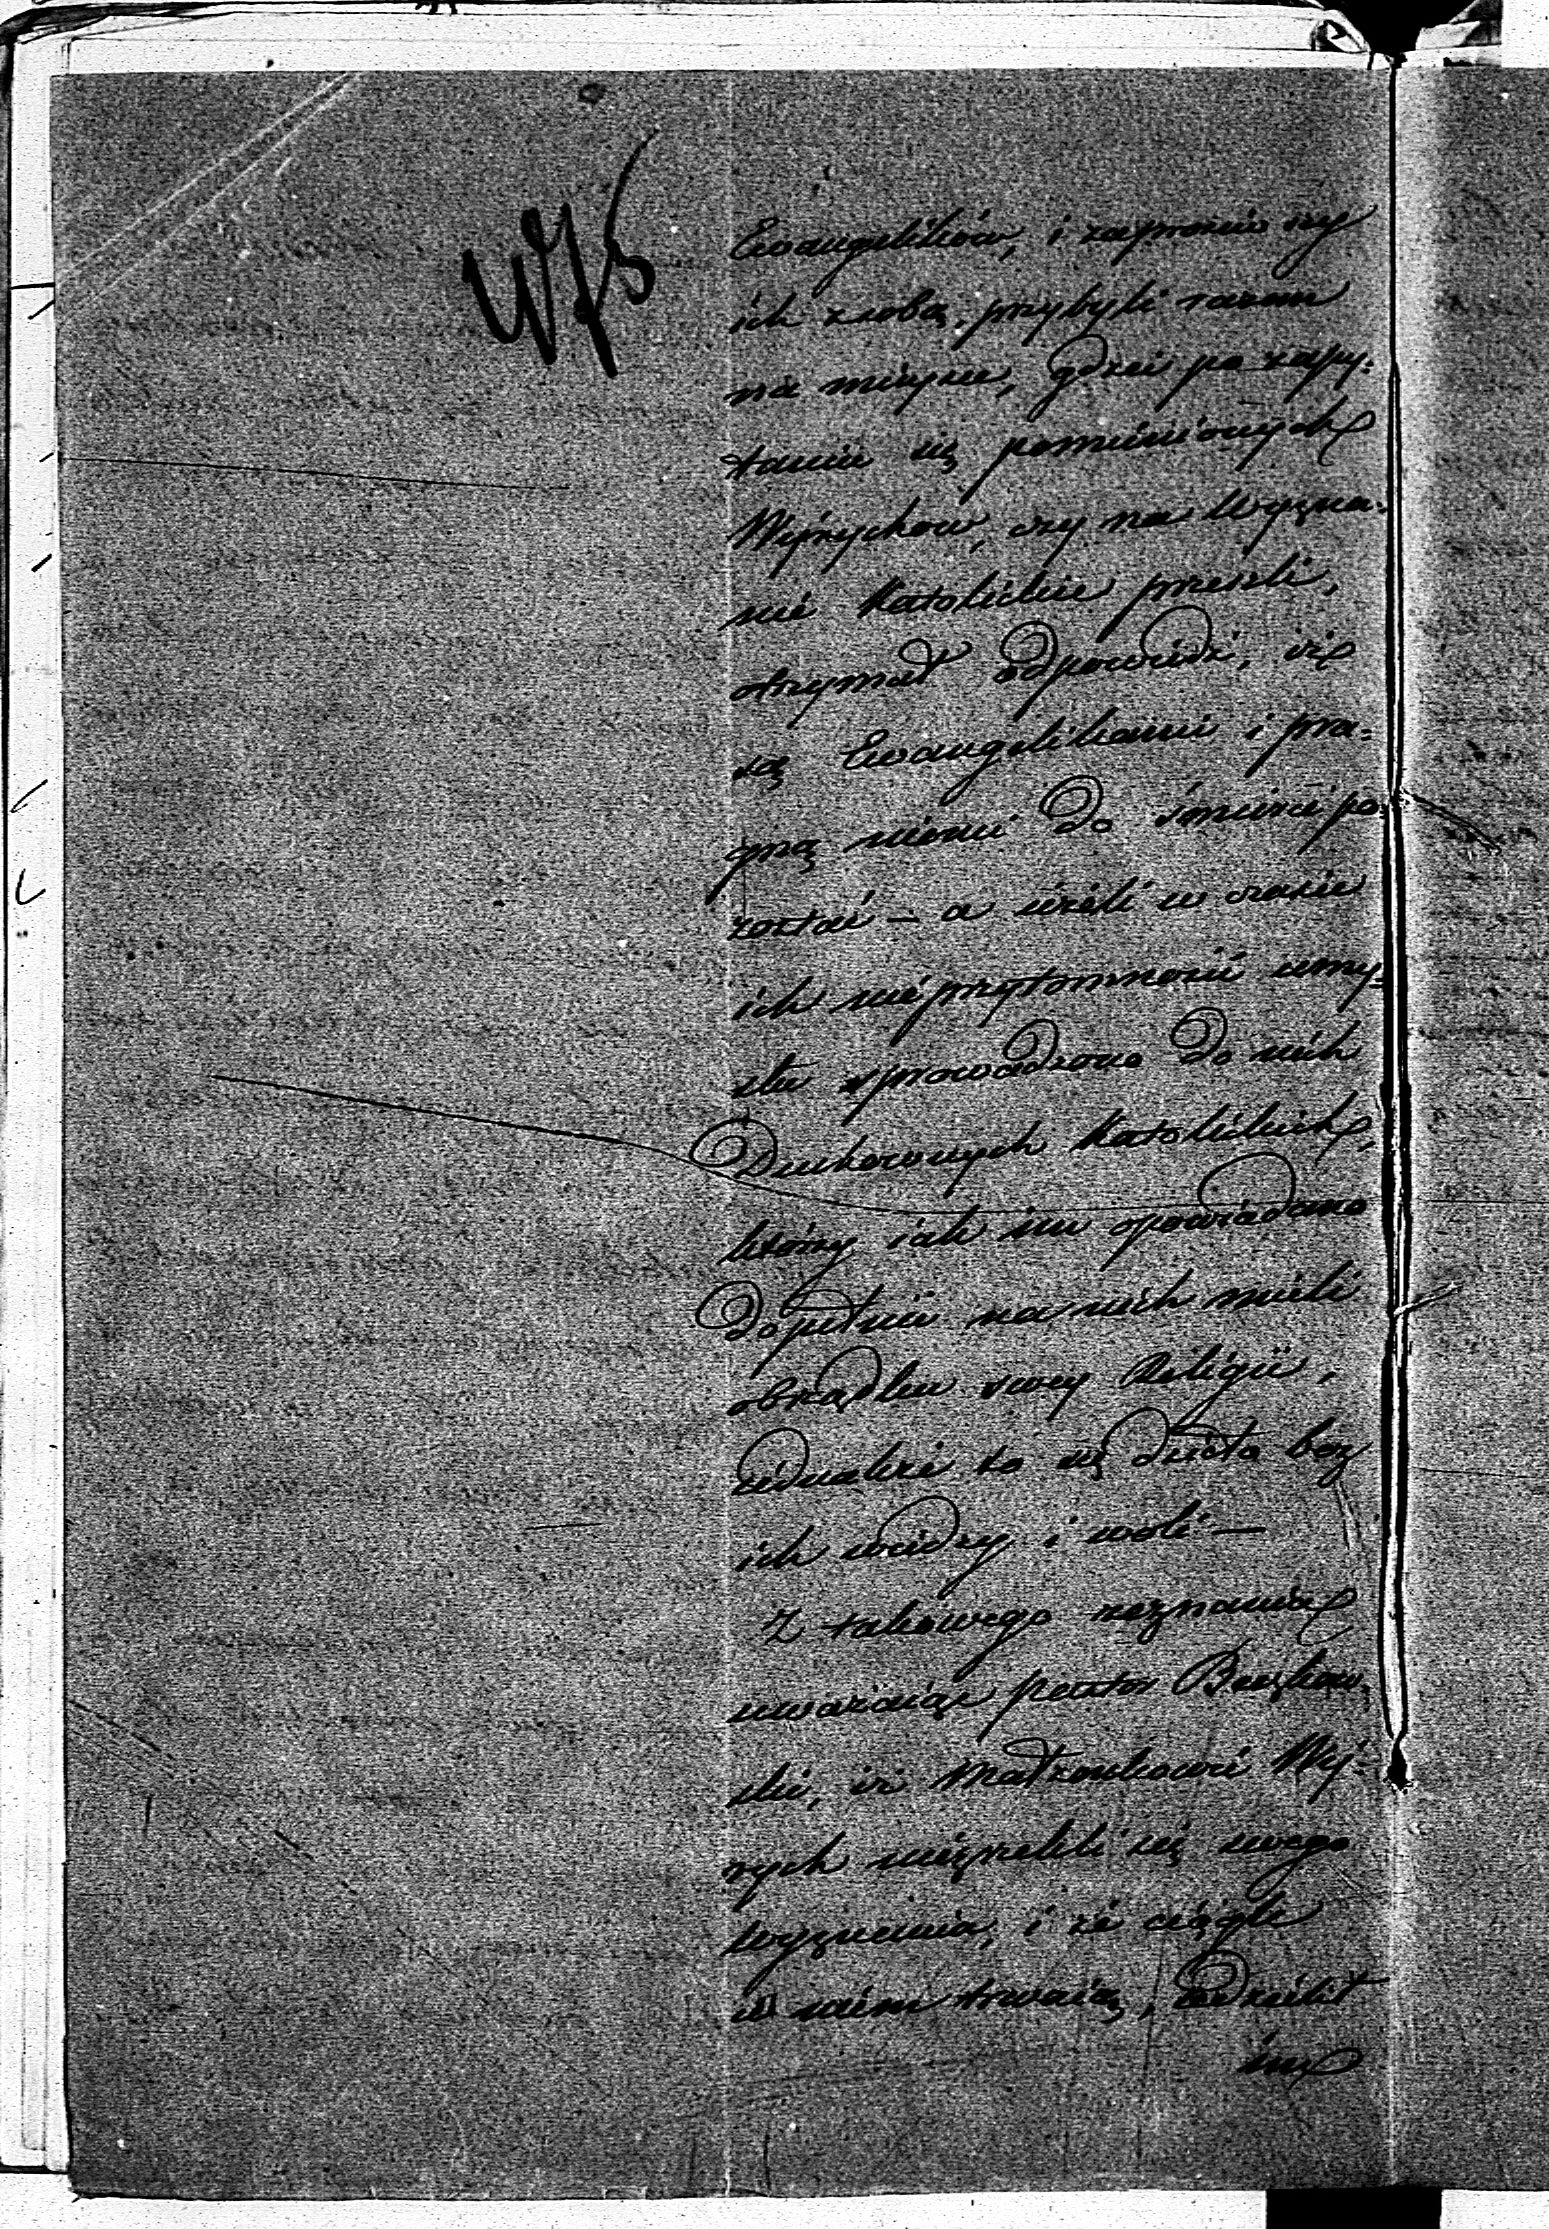 Ewangelików, i zaprosiwszy
ich z sobą przybyli razem
na mieysce, gdzie po zapy-
taniu się pomienionych
Weyrychów, czy na wyzna-
nie Katolickie przeszli,
otrzymał odpowiedź, iż
są Ewangelikami i pra-
gną niemi do śmierci po-
zostać — a ieżeli w czasie
ich nieprzytomności umy-
słu sprowadzono do nich
Duchownych Katolickich,
którzy iak im opowiadano
dopełnić na nich mieli
obrządku swey Religii,
iednakże to się działo bez
ich wiedzy i woli —
Z takowego zeznania
uważaiąc pastor
ski, iż Małżonkowie Wey-
rych niezrzekli się swego
wyznania, i że ciągle
w niém trwaią, udzielił
im